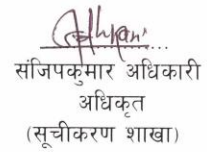 संजिपकुमार अधिकारी
अधिकृत
(सूचीकरण शाखा)